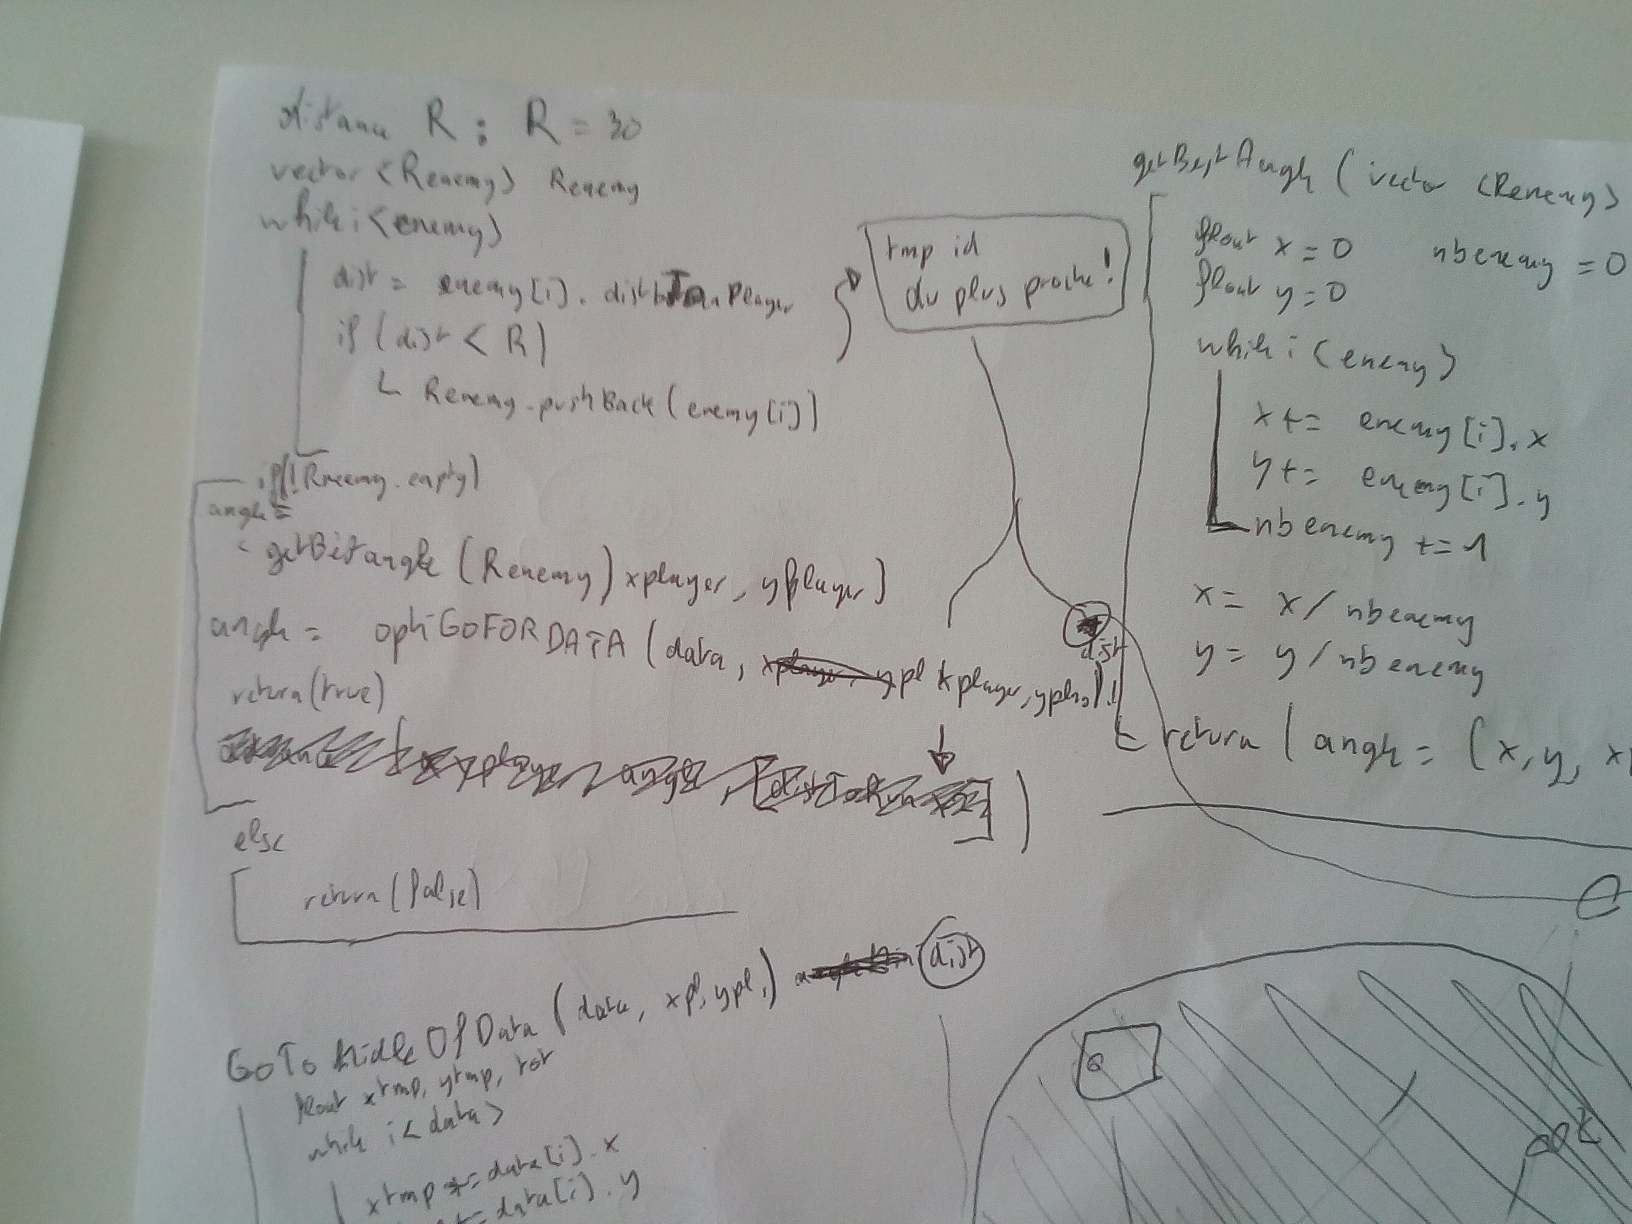 distance R : R = 30
vector <Renemy> Renemy
while i <enemy>
dist = enemy[i].
if (dist < R)
Renemy.pushBack (enemy[i])
tmp id
du plus proche !
if(!Renemy.empty)
angle =
(Renemy) xplayer, yplayer)
angle = optiGOFORDATA (data, xplayer, ypl
return(true)
else
return(false)
dist
getBestAngle (vector <Renemy>
float x = 0 nbenemy = 0
float y = 0
while i <enemy>
x += enemy[i].x
y += enemy[i].y
nbenemy += 1
x = x / nbenemy
y = y / nbenemy
return ( angle = (x, y,
GoTo Midle Of Data (data, xpl, ypl,) dist
float xtmp, ytmp, tot
while i < data>
xtmp += data[i].x
+= data[i].y